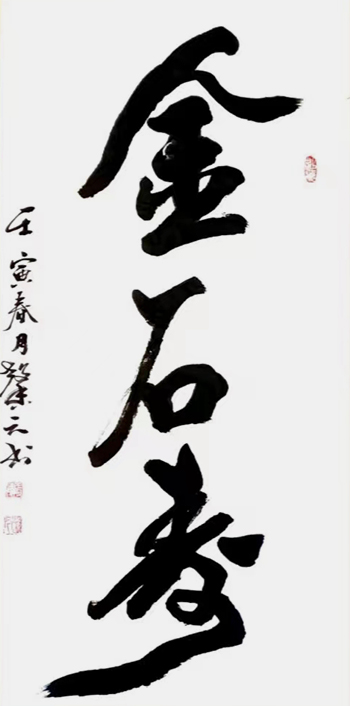 金石寿
壬寅春月黎云书